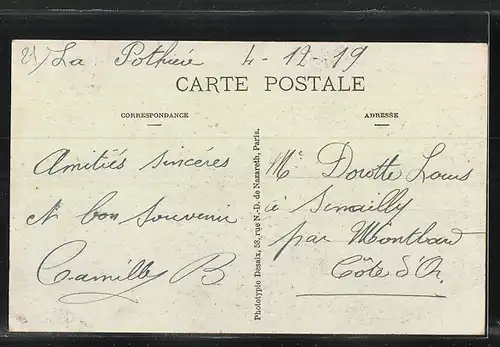 La Pothière 4-12-19
CARTE POSTALE
CORRESPONDANCE
ADRESSE
Amitiés sincères
et bon souvenir
Camille B
Phototypie Desaix, 53, rue N.-D. de Nazareth, Paris.
Dorotte Louis
à Senailly
par Montbard
Côte d'Or